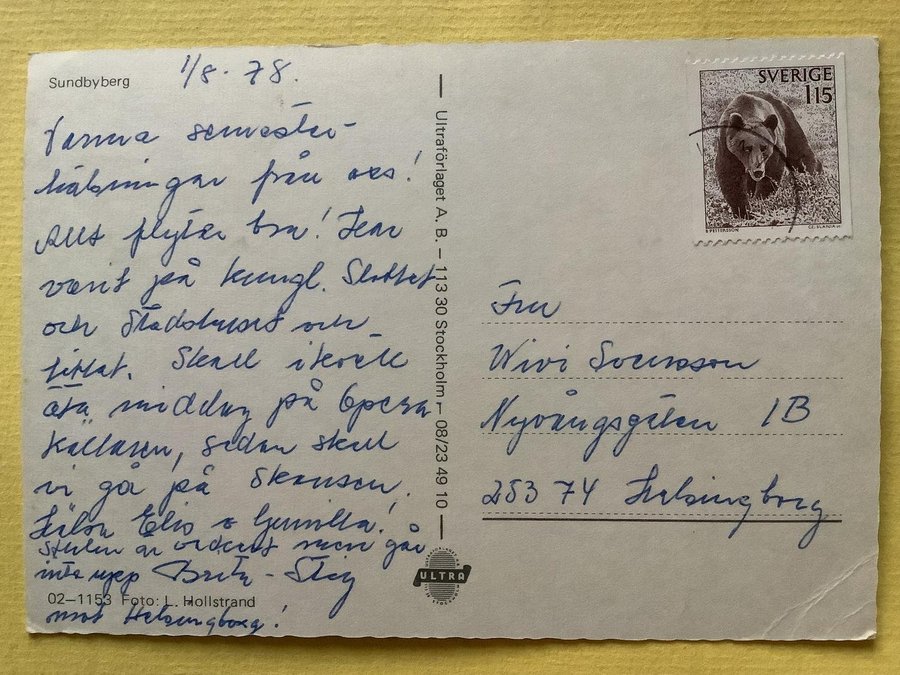 Sundbyberg
1/8. 78.
Varma semester-
hälsningar från oss!
Allt flyter bra! Har
varit på kungl. Slottet
och Stadshuset och
tittat. Skall ikväll
äta middag på Opera
källaren, sedan skall
vi gå på Skansen.
Hälsa Elis o Gunilla!
Sthlm är vackert men går
inte upp
mot Helsingborg!
Britt-Stig
02–1153 Foto: L. Hollstrand
Ultraförlaget A. B. – 113 30 Stockholm – 08/23 49 10
ULTRA
SVERIGE
115
CZ. SLANIA SC
Fru
Wivi Svensson
Nyvångsgatan 1B
253 74 Helsingborg